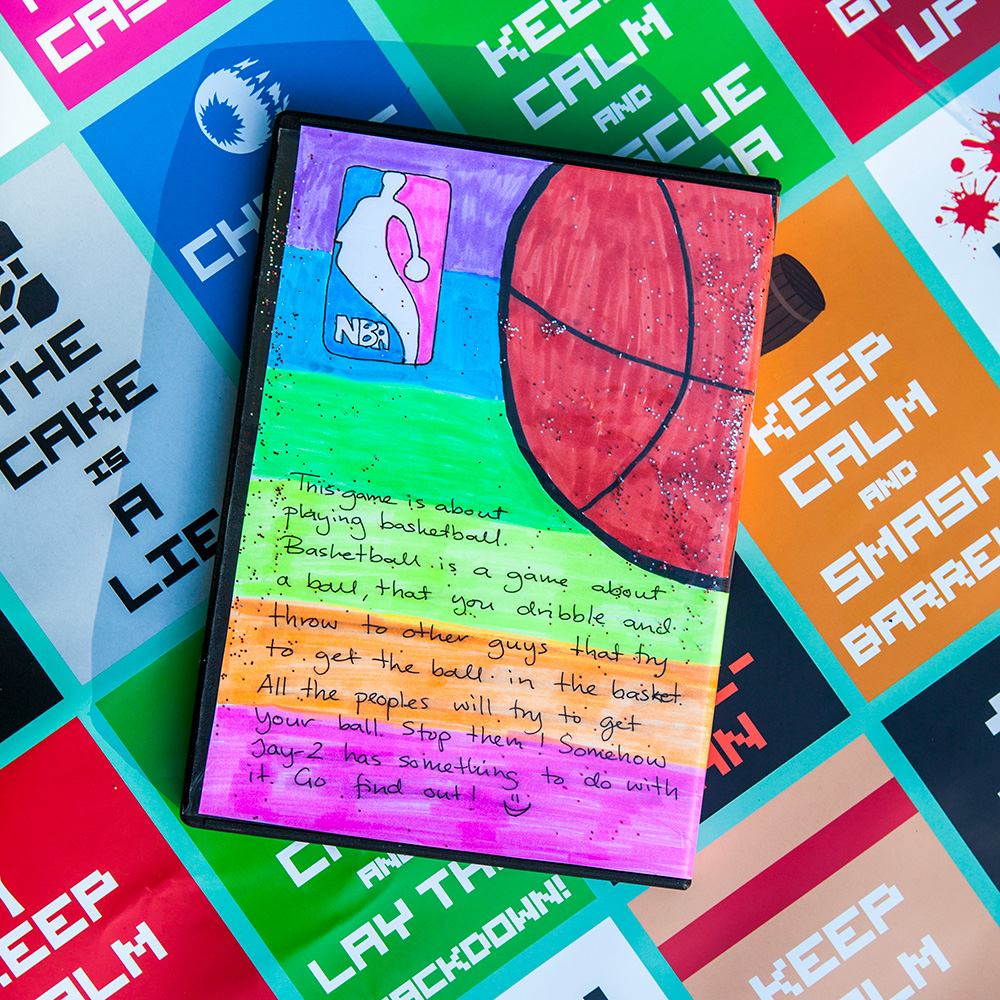 CAS
KEEP
CALM
AND
RESCUE
UP
CH
THE
CAKE
IS
A
LIE
NBA
This game is about
playing basketball.
Basketball is a game about
a ball, that you dribble and
throw to other guys that try
to get the ball in the basket.
All the peoples will try to get
your ball. Stop them! Somehow
Jay-Z has something to do with
it. Go find out!
KEEP
CALM
AND
SMASH
BARREL
AN
AND
LAY TH
ACKDOWN!
KEEP
CALM
KEEP
CALM